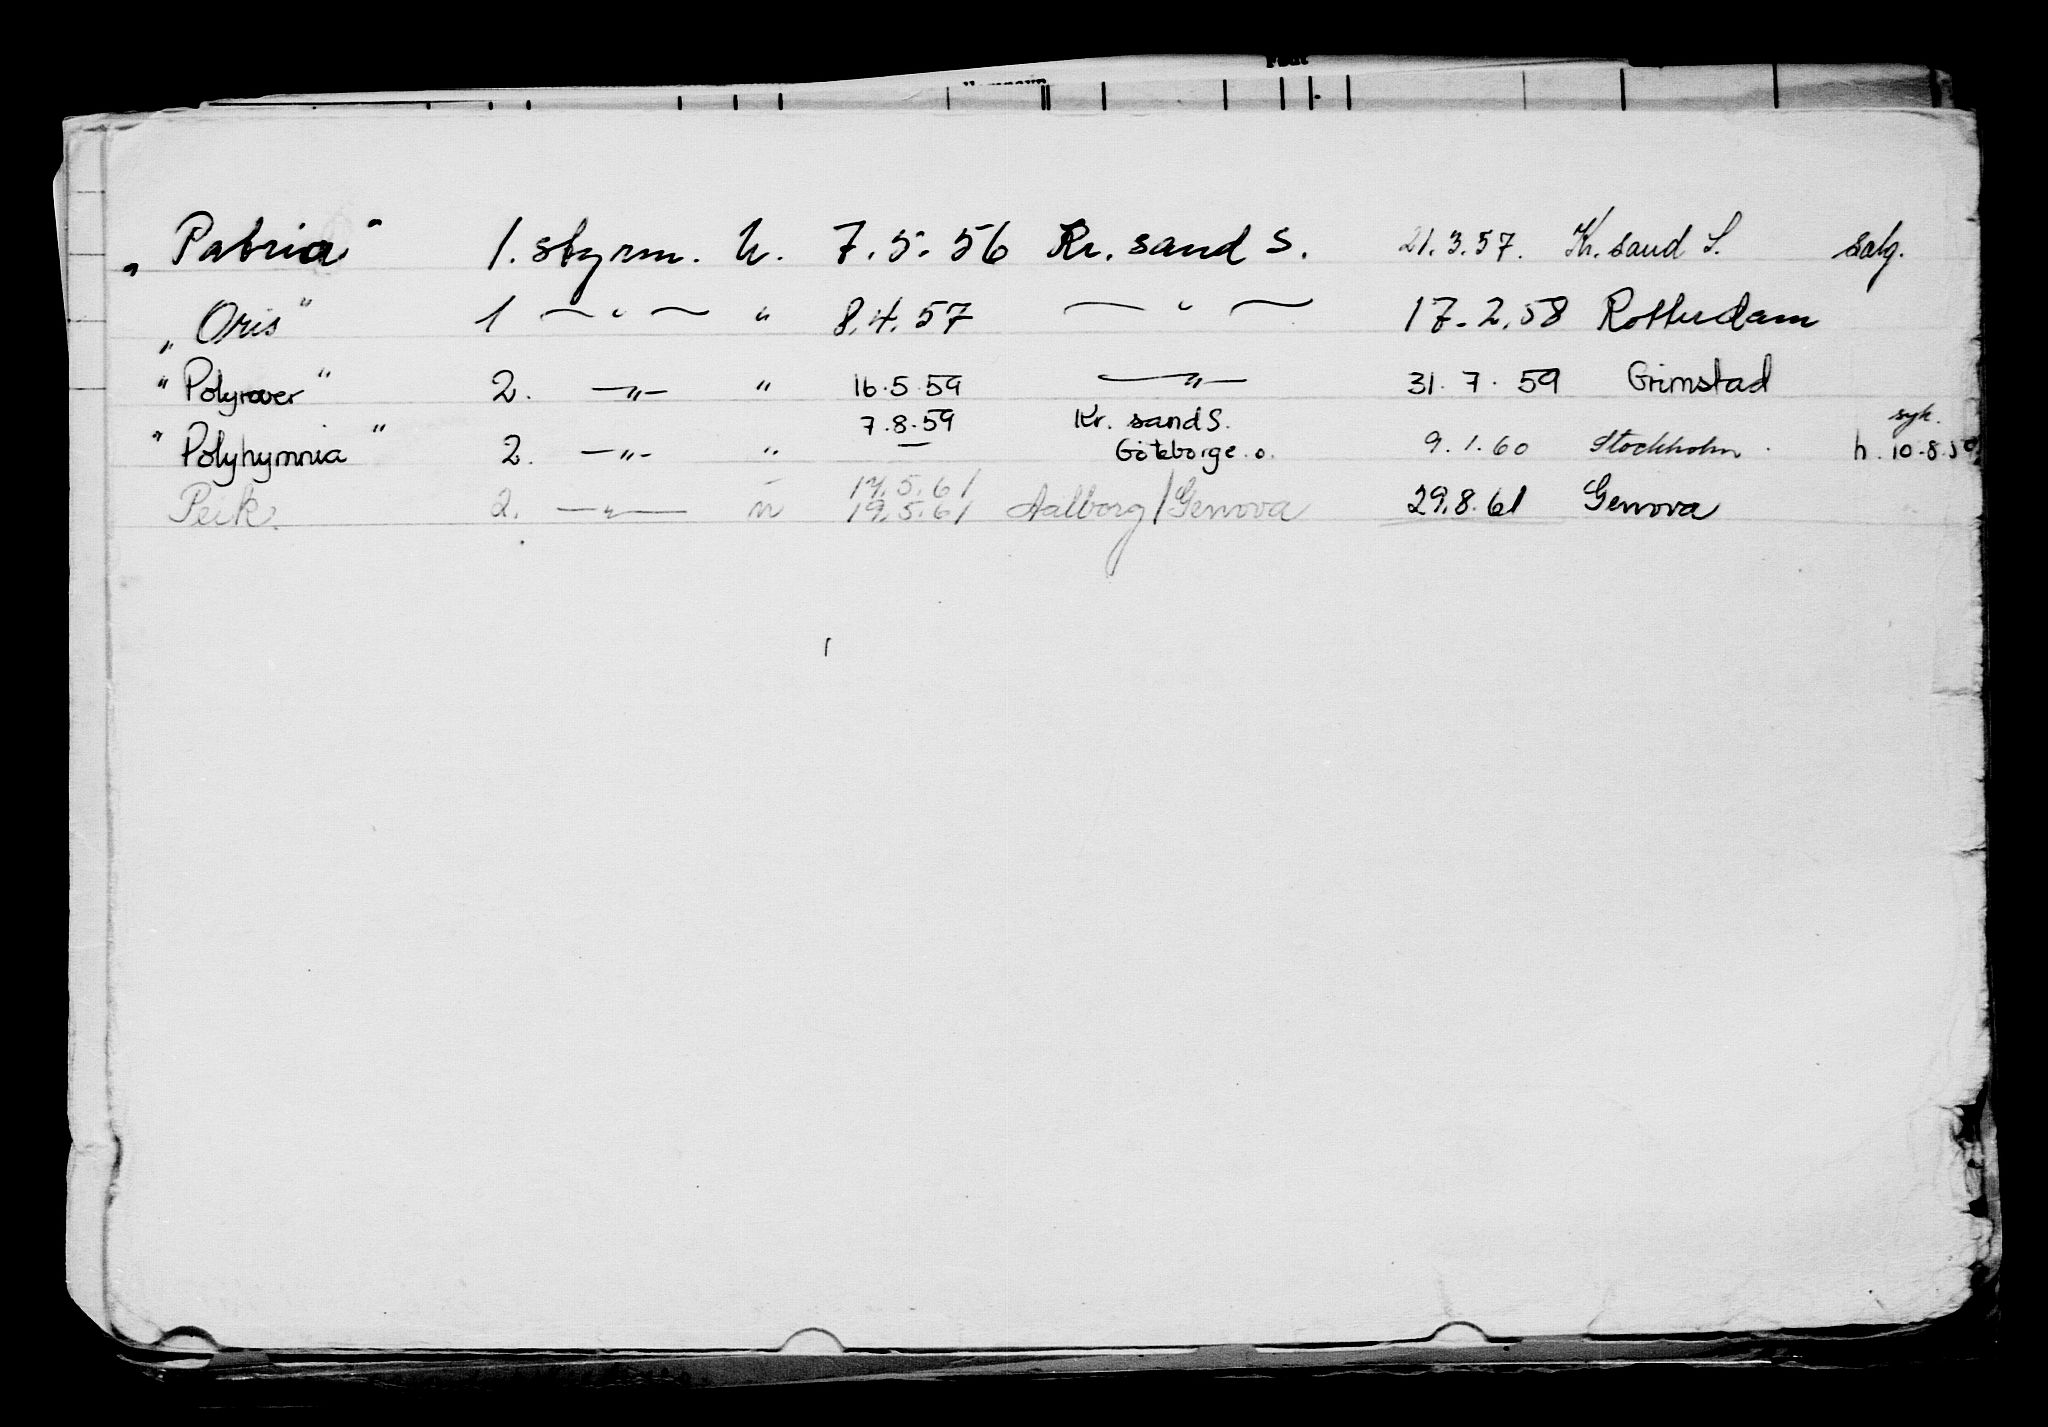 Født
„ Patria " 1. styrm. u. 7.5.56 Kr. sand S. 21.3.57. Kr. sand S. salg.
„ Oris " 1 — " — " 8.4.57 — " — 17.2.58 Rotterdam
" Polyrover " 2. — " — " 16.5.59 — " — 31.7.59 Grimstad
7.8.59 Kr. sand S. syk.
" Polyhymnia " 2. — " — " — Göteborg e.o. 9.1.60 Stockholm. h. 10.8.59
17.5.61
Peik. 2. — " — u 19.5.61 Aalborg/Genova 29.8.61 Genova